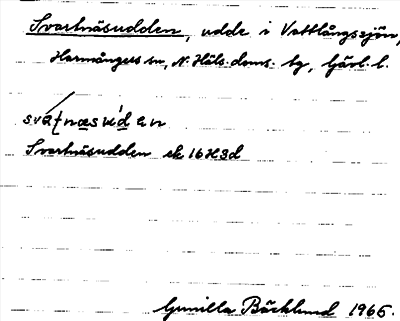 Svartnäsudden, udde i Vattlångssjön,
Harmångers sn, N. Häls. doms. bg, Gävl. l.
svat̨næsu̇́dan
Svartnäsudden ek 16H3d
Gunilla Bäcklund 1965.